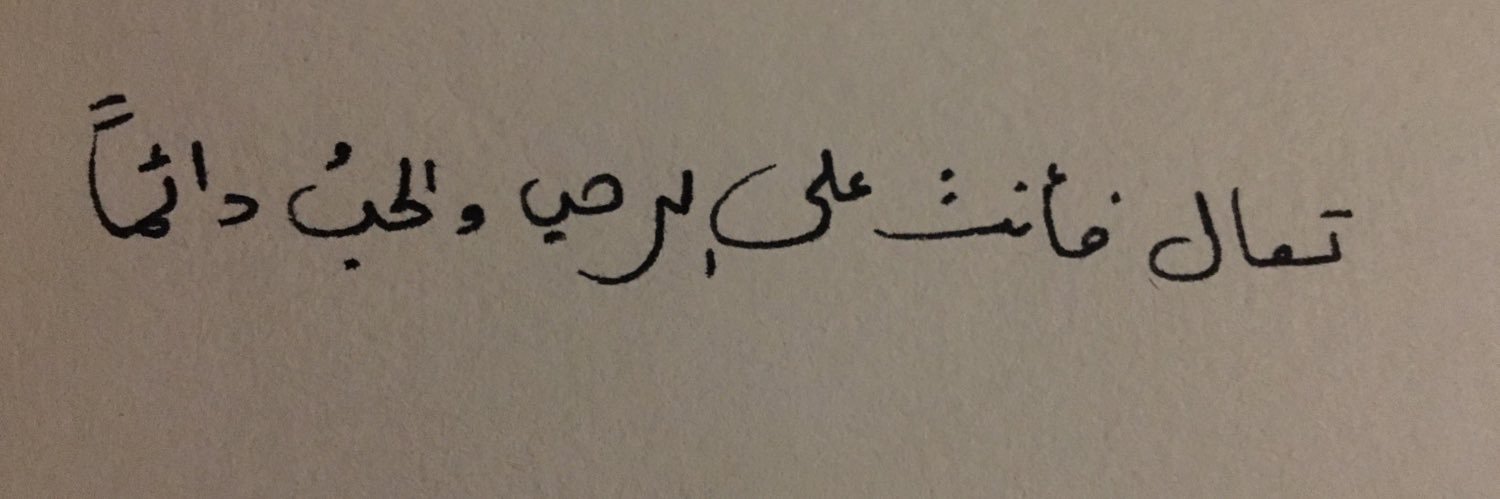 تعال فأنت على الرحب والحبُ دائماً